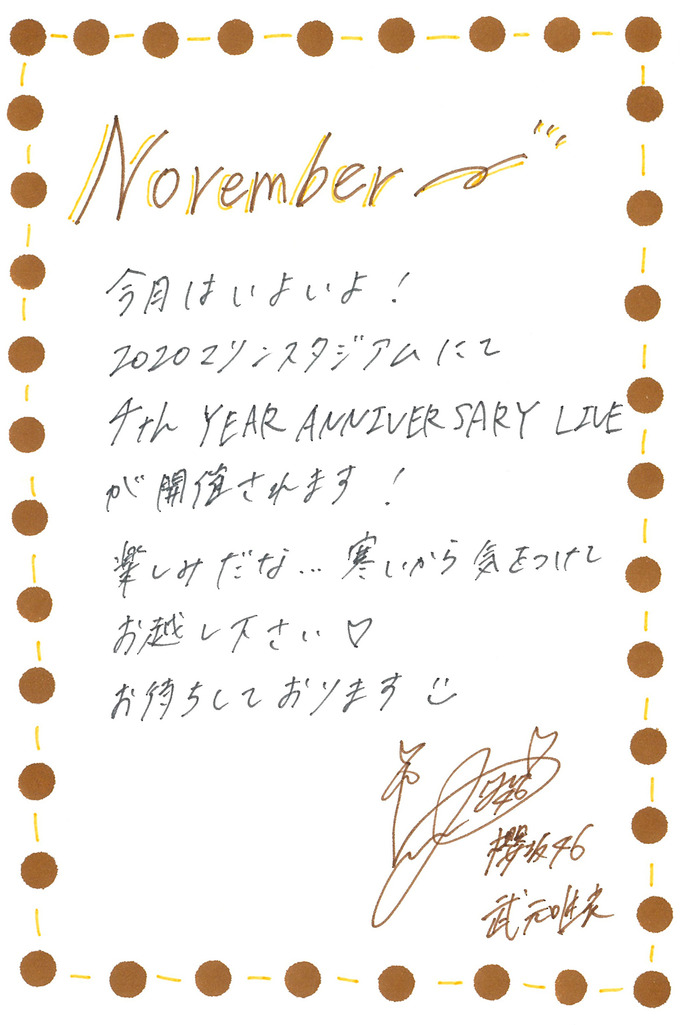 November
今月はいよいよ!
ZOZOマリンスタジアムにて
4th YEAR ANNIVERSARY LIVE
が開催されます!
楽しみだな... 寒いから気をつけて
お越し下さい♡
お待ちしております
櫻坂46
武元唯衣